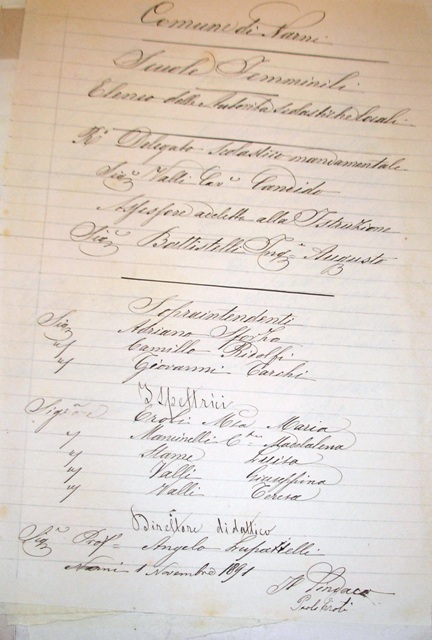 Comune di Narni
Scuole Femminili
Elenco delle Autorità scolastiche locali
R.º Delegato scolastico mandamentale
Sig.r Valli Cav.r Candido
Assessore addetto alla Istruzione
Sig.r Battistelli Ing.r Augusto
Sopraintendenti
Sig. Adriano Sforza
" Camillo Ridolfi
" Giovanni Tarchi
Ispettrici
Signore Eroli Maria
" Mannelli C.ssa Maddalena
" Stame
" Valli Giuseppina
" Valli Teresa
Direttore didattico
Sig.r Prof.r Angelo Lupattelli
Narni 1 Novembre 1891
Il Sindaco
Eroli